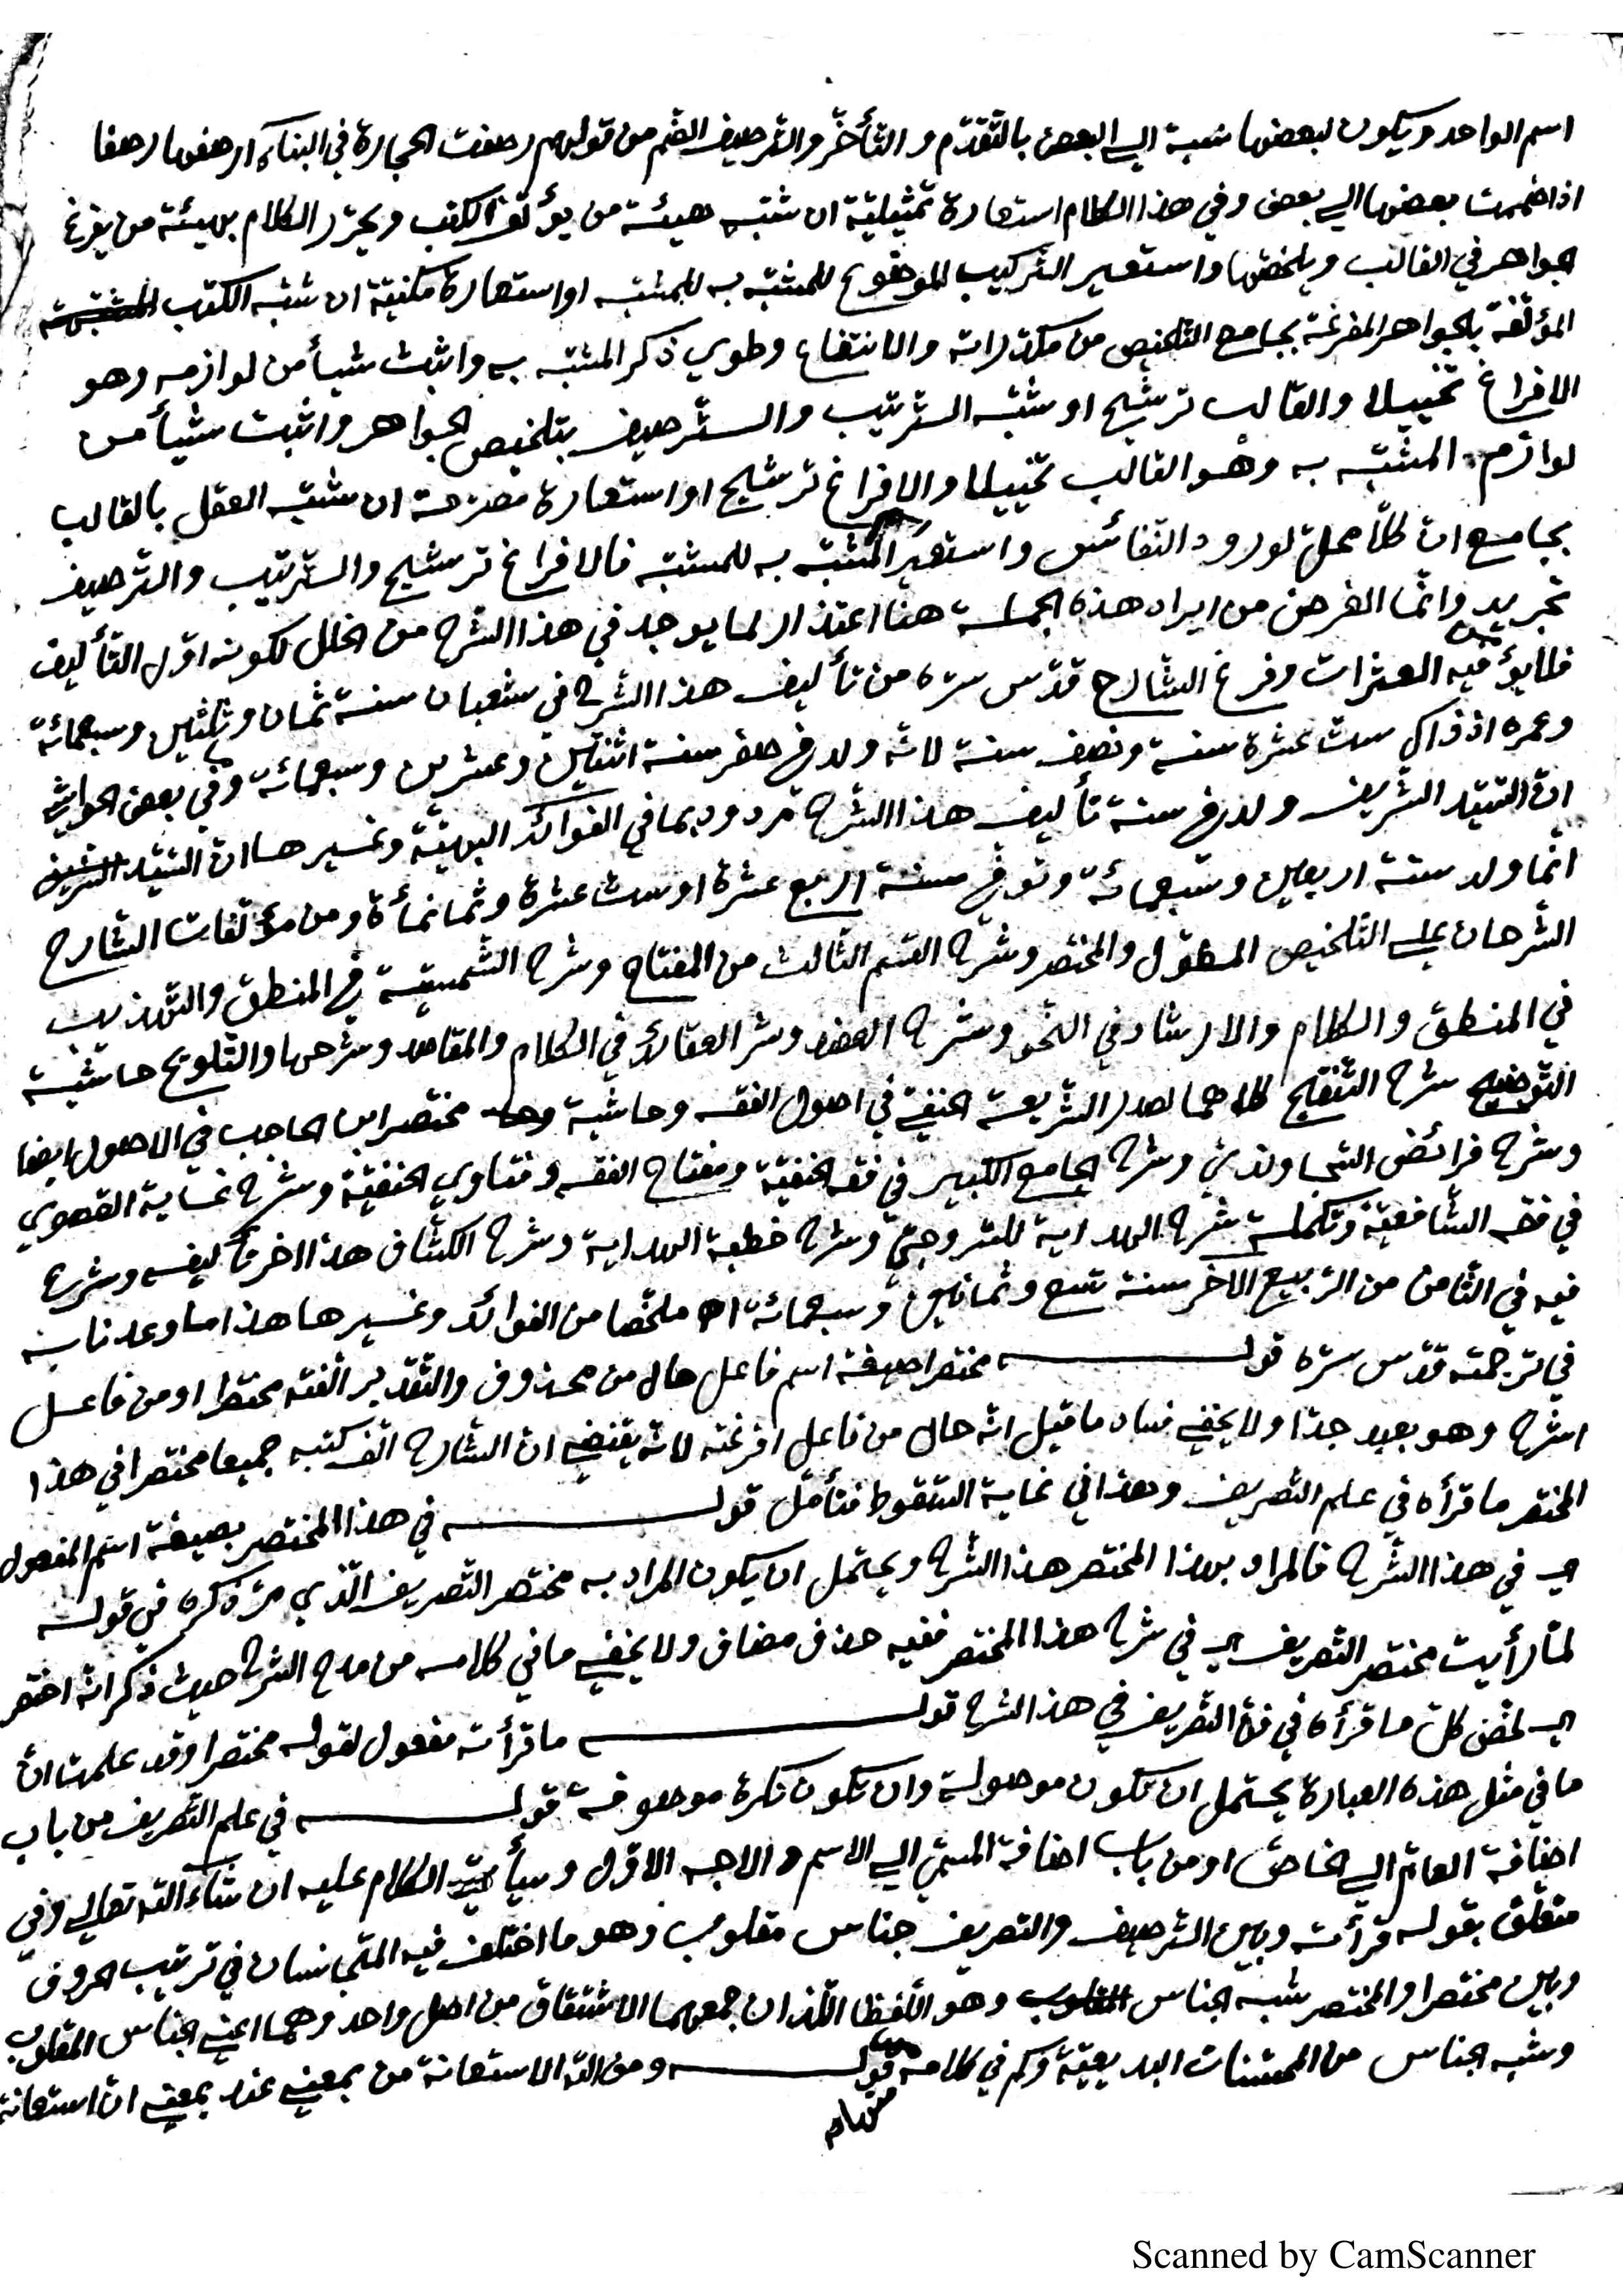 اسم الواحد ويكون لبعضها نسبة الي البعض بالتقدّم والتأخّر والترصيف الضم من قولهم رصفت الحجارة في البناء ارصفها رصفا
اذا ضممت بعضها الي بعض وفي هذا الكلام استعارة تمثيليّة ان شبّه هيئة من يؤلّف الكتب ويحرّر الكلام بهيئة من يفرغ
جواهر في القالب ويلخّصها واستعير التركيب الموضوع للمشبّه به للمشبّه او استعارة مكنيّة ان شبّه الكتب
المؤلّفة بالجواهر المفرغة بجامع التلخيص من مكدّراته والانتفاع وطوي ذكر المشبّه به واثبت شيأ من لوازمه وهو
الافراغ تخييلا والقالب ترشيح او شبّه الترتيب والترصيف بتلخيص الجواهر واثبت شيأ من
لوازم المشبّه به وهو القالب تخييلا والافراغ ترشيح او استعارة مصرّحة ان شبّه العقل بالقالب
بجامع انّ كلّا محلّ لورود النفائس واستعير المشبّه به للمشبّه فالافراغ ترشيح والترتيب والترصيف
تجريد وانّما الغرض من ايراد هذه الجملة هنا اعتذار لما يوجد في هذا الشرح من الخلل لكونه اوّل التأليف
فلا يؤمن فيه العثرات وفرغ الشارح قدّس سرّه من تأليف هذا الشرح في شعبان سنة ثمان وثلثين وسبعمائة
وعمره اذ ذاك ستّ عشرة سنة ونصف سنة لانّه ولد في صفر سنة اثنتين وعشرين وسبعمائة وفي بعض الحواشي
انّ السّيّد الشّريف ولد في سنة تأليف هذا الشرح مردود بما في الفوائد البهيّة وغسيرها انّ السّيّد الشريف
انّما ولد سنة اربعين وسبعمائة وتوفّي سنة اربع عشرة او ستّ عشرة وثمانمأة ومن مؤلّفات الشارح
الشرحان علي التلخيص المطوّل والمختصر وشرح القسم الثالث من المفتاح وشرح الشّمسيّة في المنطق والتّهذيب
في المنطق والكلام والارشاد في النّحو وشرح العضد وشر العقائد في الكلام والمقاصد وشرحها والتلويح حاشية
التوضيح شرح التنقيح كلاهما لصدر الشريعة الحنفيّ في اصول الفقه وحاشية مختصر ابن الحاجب في الاصول ايضا
وشرح فرائض السّجاونديّ وشرح الجامع الكبير في فقه الحنفيّة ومفتاح الفقه وفتاوي الحنفيّة وشرح غاية القصوي
في فقه الشّافعيّة وتكملة شرح الهداية للسّروجيّ وشرح خطبة الهداية وشرح الكشّاف هذا اخر تأليفه وشرع
فيه في الثّامن من الرّبيع الاخر سنة تسع وثمانين وسبعمائة اه ملخّصا من الفوائد وغسيرها هذا ما وعدناه
في ترجمته قدّس سرّه قوله مختصرا صيغة اسم فاعل حال من محذوف والتقدير الّفته مختصرا او من فاعل
اشرح وهو بعيد جدّا ولا يخفي فساد ما قيل انّه حال من فاعل افرغته لانّه يقتضي انّ الشارح الّف كتبه جميعا مختصرا في هذا
المختصر ما قرأه في علم التصريف وهذا في غاية السّقوط فتأمّل قوله في هذا المختصر بصيغة اسم المفعول
اي في هذا الشّرح فالمراد بهذا المختصر هذا الشّرح ويحتمل ان يكون المراد به مختصر التصريف الّذي مرّ ذكره في قوله
لمّا رأيت مختصر التصريف اي في شرح هذا المختصر ففيه حذف مضاف ولا يخفي ما في كلامه من مدح الشرح حيث ذكر انّه اختصر
اي لخّص كلّ ما قرأه في فنّ التّصريف في هذا الشرح قوله ما قرأته مفعول لقوله مختصرا وقد علمت انّ
ما في مثل هذه العبارة يحتمل ان تكون موصولة وان تكون نكرة موصوفة قوله في علم التصريف من باب
اضافة العامّ الي الخاصّ او من باب اضافة المسمّي الي الاسم والاجه الاوّل وسيأتي الكلام عليه ان شاء الله تعالي وفي
متعلّق بقوله قرأته وبين الترصيف والتصريف جناس مقلوب وهو ما اختلف فيه المتجانسان في ترتيب الحروف
وبين مختصرا والمختصر شبه الجناس وهو اللّفظا اللّذان جمعهما الاشتقاق من اصل واحد وهما اعني الجناس المقلوب
وشبه الجناس من المحسّنات البديعيّة وكم في كلامه منهما قوله ومن اللّه الاستعانة من بمعني عند بمعني انّ استعانة